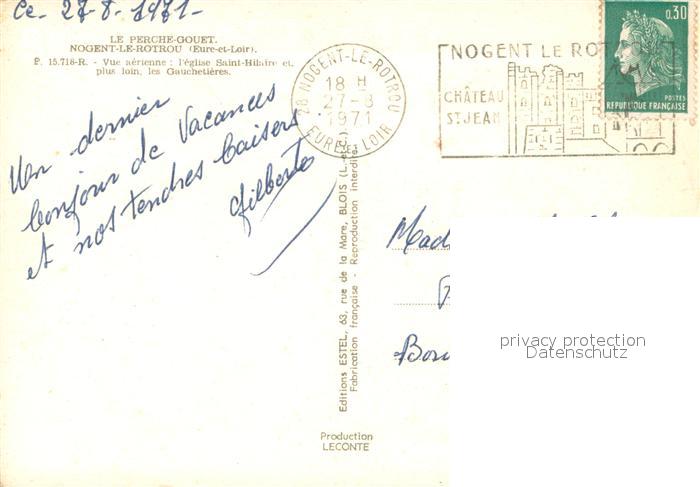 Ce 27-8-1971-
LE PERCHE-GOUET.
NOGENT-LE-ROTROU (Eure-et-Loir).
P. 15.718-R. - Vue aérienne : l'église Saint-Hilaire et,
plus loin, les Gauchetières.
Un dernier
bonjour de Vacances
et nos tendres baisers
Gilberte
28 NOGENT-LE-ROTROU
18 H
27-8
1971
EURE-ET-LOIR
NOGENT LE ROTROU
CHÂTEAU
ST JEAN
0,30
POSTES
REPUBLIQUE FRANÇAISE
Editions ESTEL, 63, rue de la Mare, BLOIS (L.-et-C.)
Fabrication française - Reproduction interdite
Production
LECONTE
privacy protection
Datenschutz